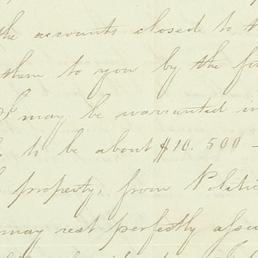 the accounts closed to the
them to you by the fi
I may be warranted in
to be about $10.500 -
property, from Politic
may rest perfectly assu